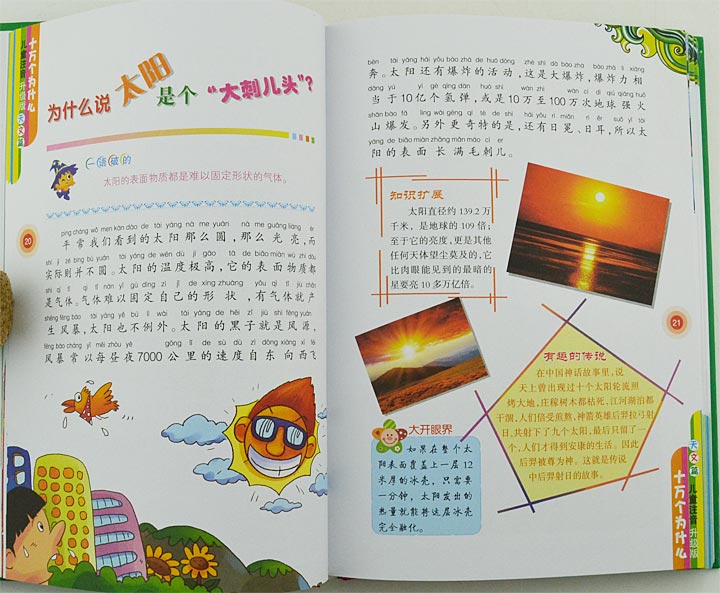 十万个为什么
儿童注音升级版
天文篇
为什么说太阳是个“大刺儿头”?
一语破的
太阳的表面物质都是难以固定形状的气体。
píng cháng wǒ men kàn dào de tài yáng nà me yuán nà me guāng liàng ér
平常我们看到的太阳那么圆,那么光亮,而
shí jì zé bìng bù yuán tài yáng de wēn dù jí gāo tā de biǎo miàn wù zhì dōu
实际则并不圆。太阳的温度极高,它的表面物质都
shì qì tǐ qì tǐ nán yǐ gù dìng zì jǐ de xíng zhuàng yǒu qì tǐ jiù chǎn
是气体。气体难以固定自己的形状,有气体就产
shēng fēng bào tài yáng yě bù lì wài tài yáng de hēi zǐ jiù shì fēng yuán
生风暴,太阳也不例外。太阳的黑子就是风源,
fēng bào cháng yǐ měi zhòu yè gōng lǐ de sù dù zì dōng xiàng xī fēi
风暴常以每昼夜7000公里的速度自东向西飞
20
bēn tài yáng hái yǒu bào zhà de huó dòng zhè shì dà bào zhà bào zhà lì xiāng
奔。太阳还有爆炸的活动,这是大爆炸,爆炸力相
dāng yú yì gè qīng dàn huò shì wàn zhì wàn cì dì qiú qiáng huǒ
当于10亿个氢弹,或是10万至100万次地球强火
shān bào fā lìng wài gèng qí tè de shì hái yǒu rì miǎn rì ěr suǒ yǐ tài
山爆发。另外更奇特的是,还有日冕、日耳,所以太
yáng de biǎo miàn zhǎng mǎn máo cì er
阳的表面长满毛刺儿。
知识扩展
太阳直径约139.2万
千米,是地球的109倍;
至于它的亮度,更是其他
任何天体望尘莫及的,它
比肉眼能见到的最暗的
星要亮10多万亿倍。
21
有趣的传说
在中国神话故事里,说
天上曾出现过十个太阳轮流照
烤大地,庄稼树木都枯死、江河湖泊都
干涸,人们倍受煎熬,神箭英雄后羿拉弓射
日,共射下了九个太阳,最后只留了一
个,人们才得到安康的生活。因此
后羿被尊为神。这就是传说
中后羿射日的故事。
大开眼界
如果在整个太
阳表面覆盖上一层12
米厚的冰壳,只需要
一分钟,太阳发出的
热量就能将这层冰壳
完全融化。
天文篇
儿童注音升级版
十万个为什么